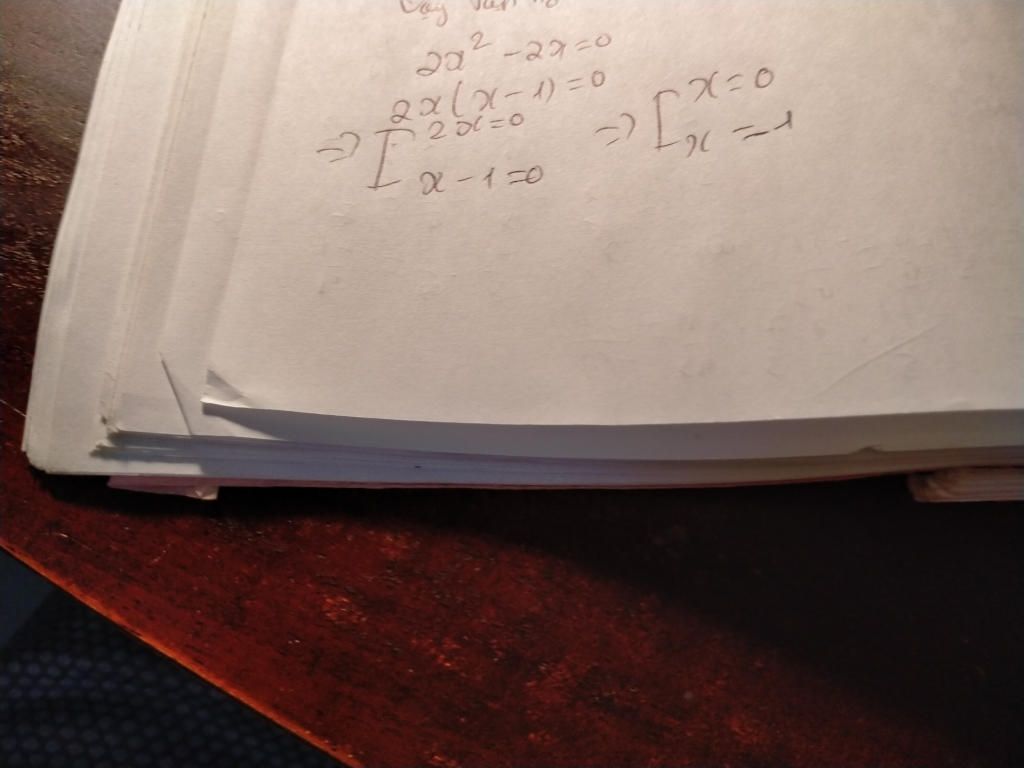 2x² - 2x = 0
2x(x - 1) = 0
=> [ 2x = 0 => [ x = 0
x - 1 = 0 x = -1